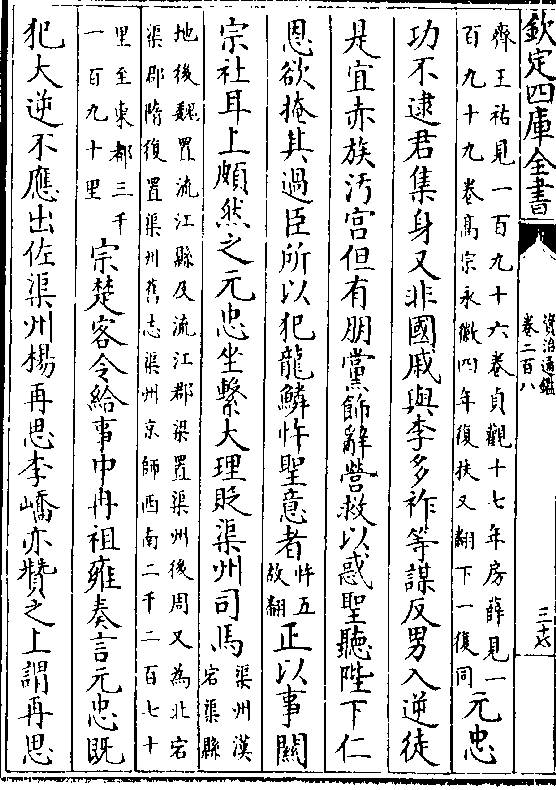 欽定四庫全書
資治通鑑
卷二百八
三十六
齊王祐見一百九十六卷貞觀十七年房薛見一
百九十九卷高宗永徽四年復扶又翻下一復同
元忠
功不逮君集身又非國戚與李多祚等謀反男入逆徒
是宜赤族汚宮但有朋黨飾辭營救以惑聖聽陛下仁
恩欲掩其過臣所以犯龍鱗忤聖意者
忤五
故翻
正以事關
宗社耳上頗然之元忠坐繫大理貶渠州司馬
渠州漢
宕渠縣
地後魏置流江縣及流江郡梁置渠州後周又為北宕
渠郡隋復置渠州舊志渠州京師西南二千二百七十
里至東都三千
一百九十里
宗楚客令給事中冉祖雍奏言元忠既
犯大逆不應出佐渠州楊再思李嶠亦贊之上謂再思